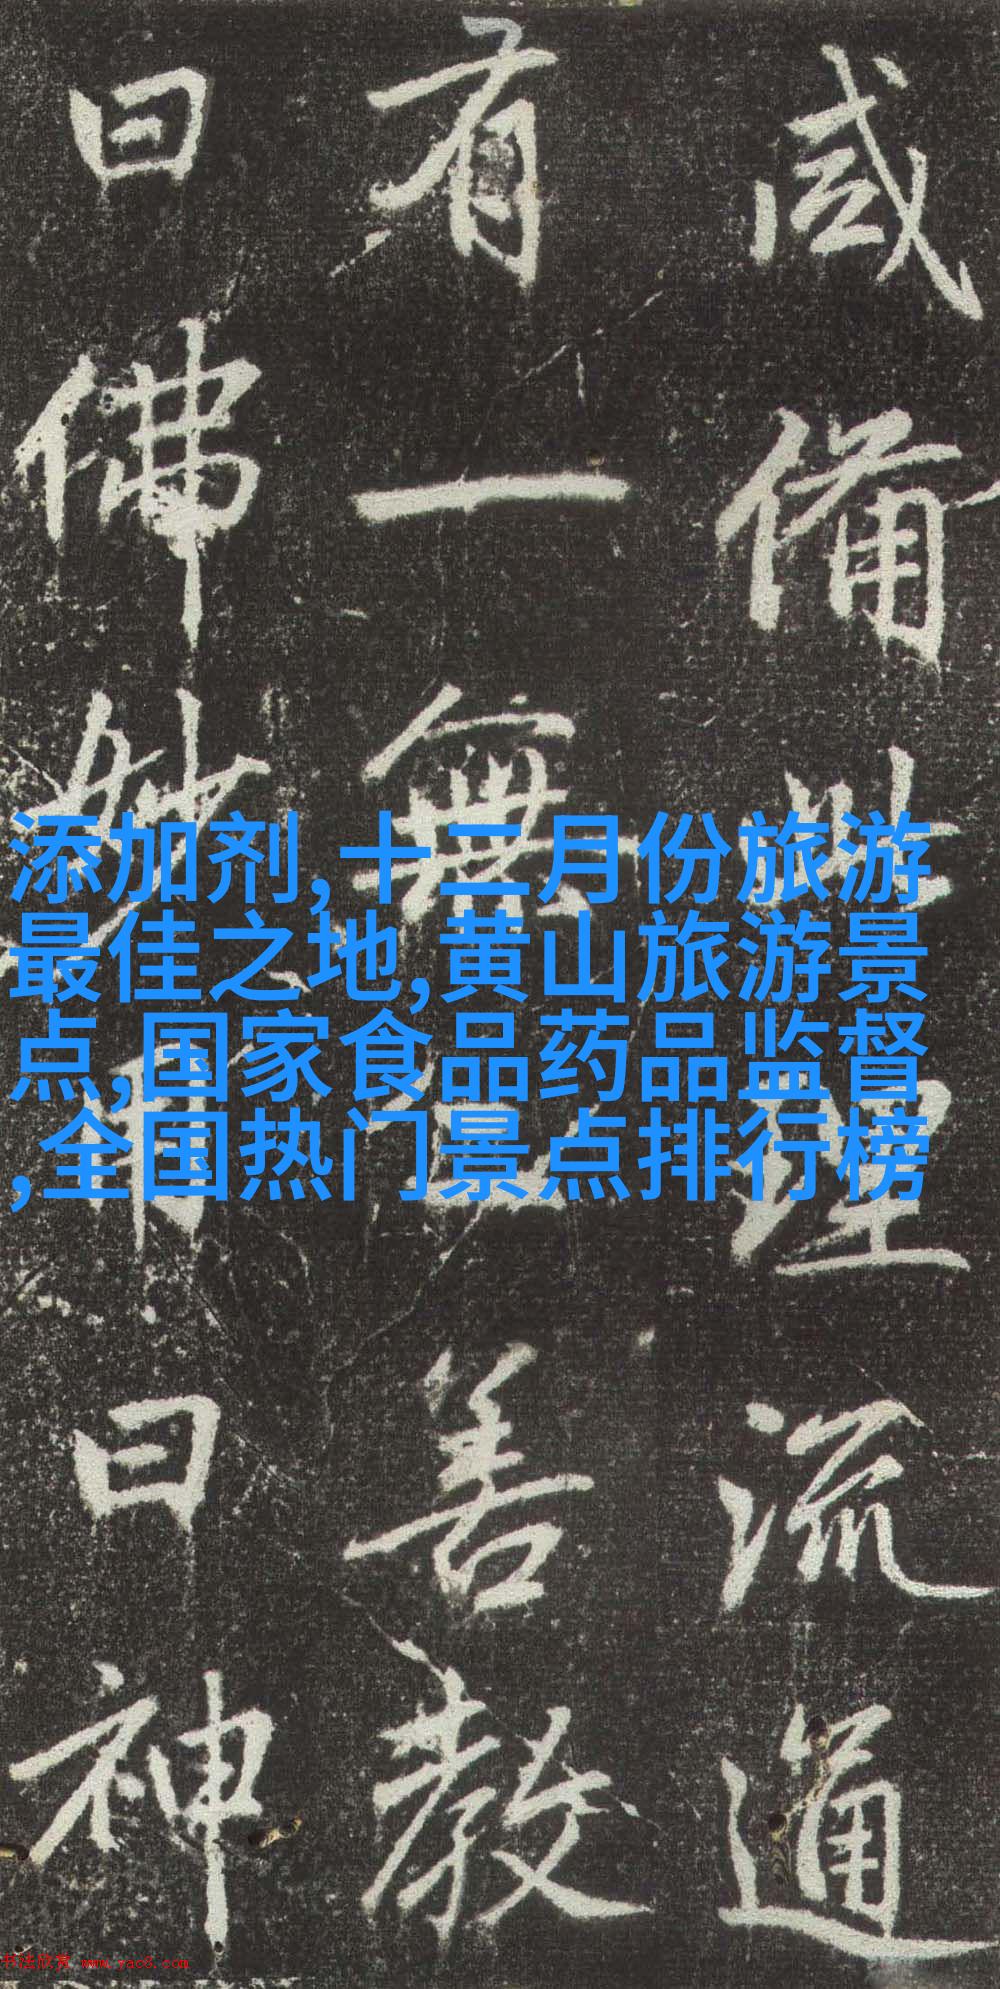 咸備眾理流通
有一無二善教
曰佛妙用曰神
添加剂,十二月份旅游
最佳之地,黄山旅游景
点,国家食品药品监督
,全国热门景点排行榜
书法欣赏 www.yac8.com